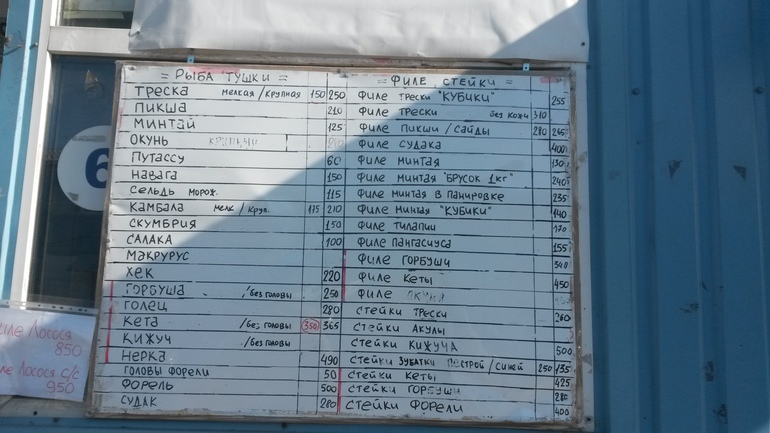 = РЫБА ТУШКИ =
ТРЕСКА мелкая/крупная 150 250
ПИКША 210
МИНТАЙ 125
ОКУНЬ
ПУТАССУ 60
НАВАГА 150
СЕЛЬДЬ МОРОЖ. 115
КАМБАЛА мелк/круп. 175 210
СКУМБРИЯ 150
САЛАКА 100
МАКРУРУС
ХЕК 220
ГОРБУША /без головы 250
ГОЛЕЦ 280
КЕТА /без головы 350 365
КИЖУЧ /без головы
НЕРКА 490
ГОЛОВЫ ФОРЕЛИ 50
ФОРЕЛЬ 500
СУДАК 280
= ФИЛЕ СТЕЙКИ =
ФИЛЕ ТРЕСКИ "КУБИКИ" 255
ФИЛЕ ТРЕСКИ без кожи 310
ФИЛЕ ПИКШИ/САЙДЫ 280 265
ФИЛЕ СУДАКА 400
ФИЛЕ МИНТАЯ 130
ФИЛЕ МИНТАЯ "БРУСОК 1кг" 240
ФИЛЕ МИНТАЯ В ПАНИРОВКЕ 235
ФИЛЕ МИНТАЯ "КУБИКИ" 140
ФИЛЕ ТИЛАПИИ 170
ФИЛЕ ПАНГАСИУСА 155
ФИЛЕ ГОРБУШИ 340
ФИЛЕ КЕТЫ 450
ФИЛЕ
СТЕЙКИ ТРЕСКИ 260
СТЕЙКИ АКУЛЫ
СТЕЙКИ КИЖУЧА 500
СТЕЙКИ ЗУБАТКИ ПЕСТРОЙ/СИНЕЙ 250 135
СТЕЙКИ КЕТЫ 425
СТЕЙКИ ГОРБУШИ 280
СТЕЙКИ ФОРЕЛИ 400
6
Лосося
850
Лосося с/с
950